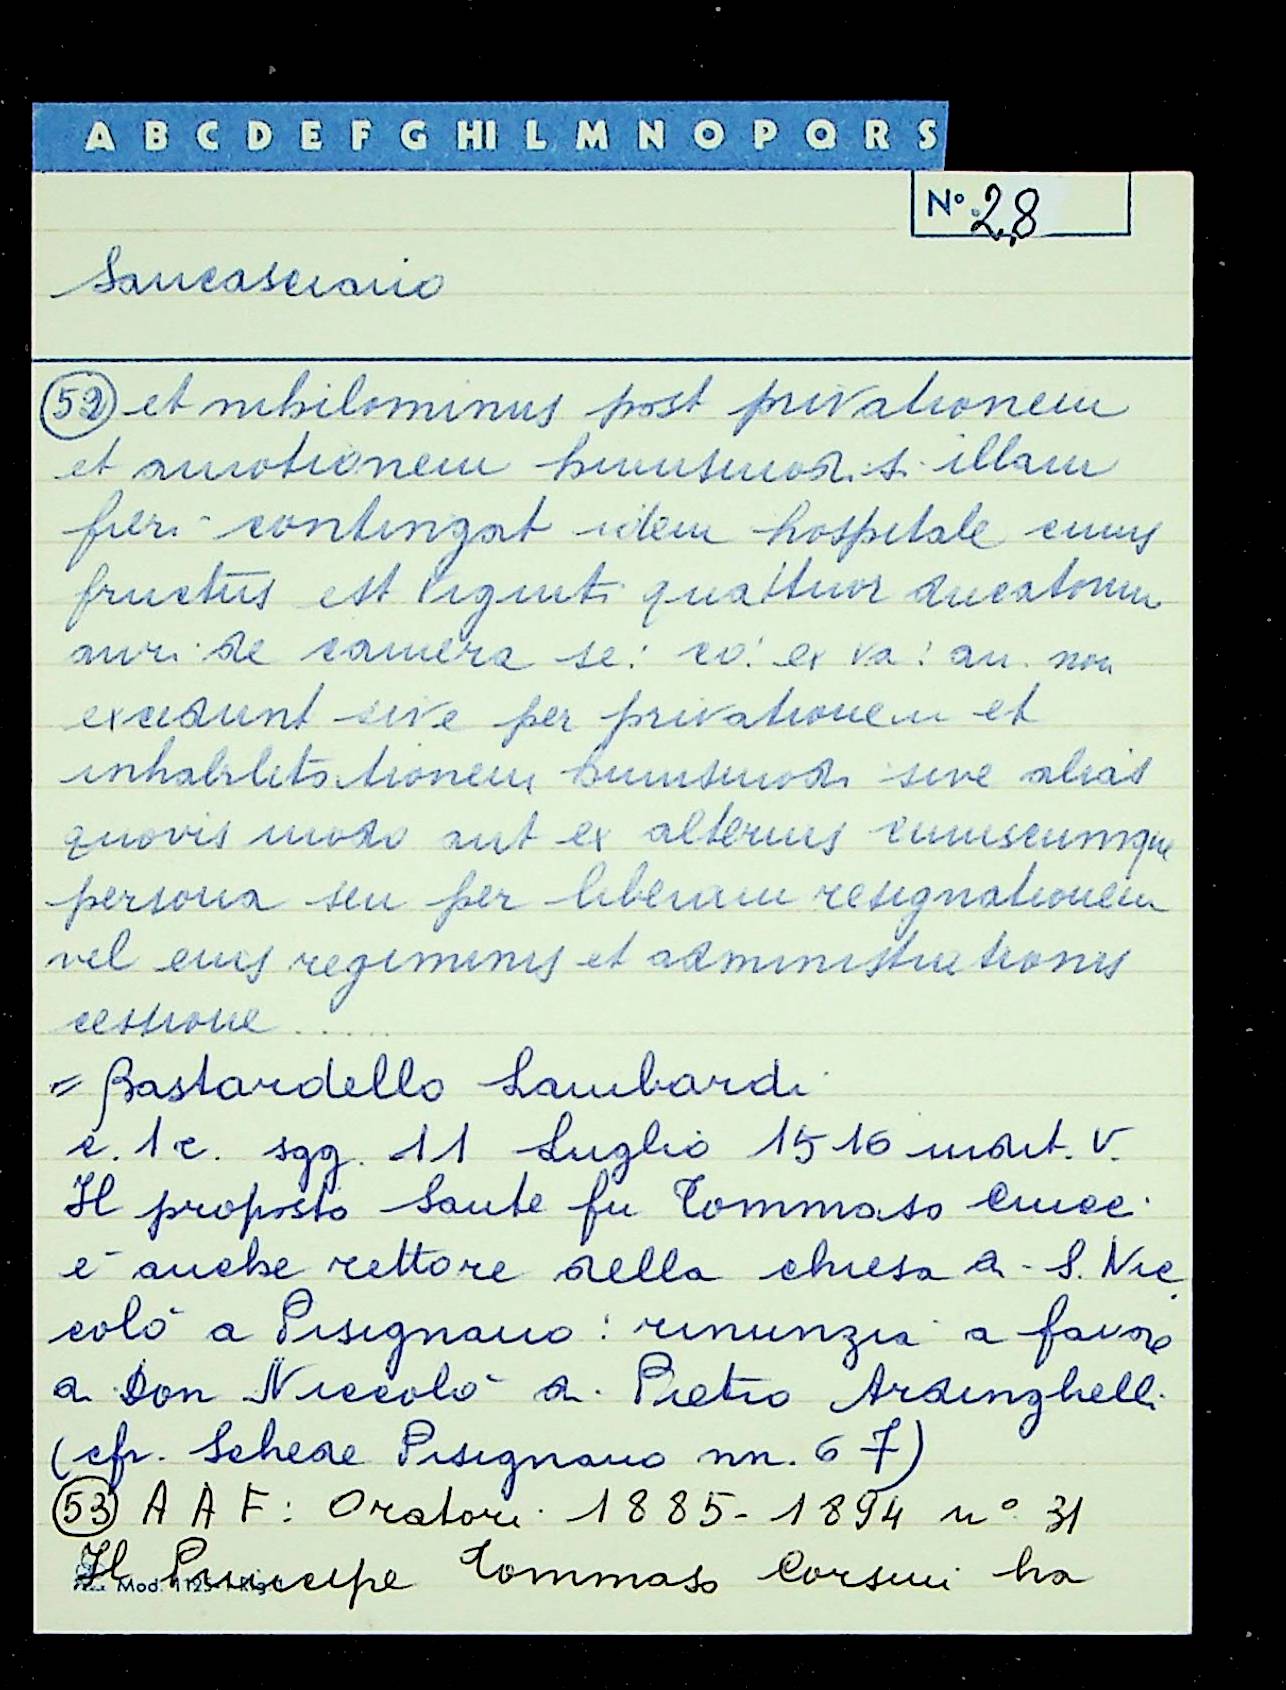 A B C D E F G HI L M N O P Q R S
N° 28
Sancasciano
52 et nihilominus post privationem
et amotionem huiusmodi si illam
fieri contingat idem hospitale cuius
fructus est viginti quattuor ducatorum
auri de camera se: co: ex va: an. non
excedunt sive per privationem et
inhabilitationem huiusmodi sive alias
quovis modo aut ex alterius cuiuscumque
persona seu per liberam resignationem
vel eius regiminis et administrationis
cessione .....
= Bastardello Lambardi
c. 1 r. sgg. 11 Luglio 1516 indit. V.
Il proposto Sante fu Tommaso
è anche rettore della chiesa di S. Nic
colò a Pisignano: rinunzia a favore
di Don Niccolò di Pietro Ardinghelli
(cfr. Schede Pisignano nn. 6 7)
53 A A F: Oratori 1885-1894 n° 31
Il Principe Tommaso Corsini ha
Mod. 1125